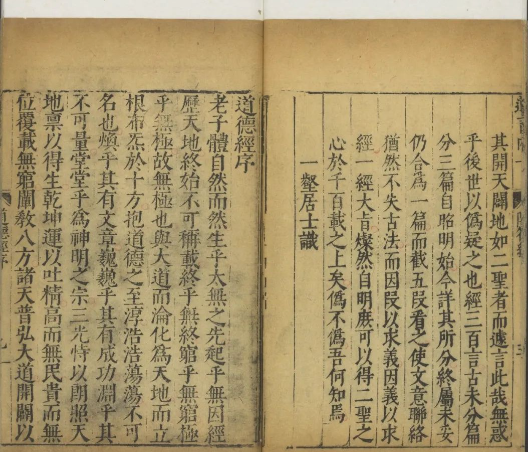 其開天闢地如二聖者而遽言此哉無惑
乎後世以偽疑之也經三百言古未分篇
分三篇自昭明始今詳其所分終屬未妥
仍合為一篇而截五段看之使文意聯絡
猶然不失古法而因段以求義因義以求
經一經大旨燦然自明庶可以得二聖之
心於千百載之上矣偽不偽吾何知焉
一壑居士識
道德經序
老子體自然而然生乎太無之先起乎無因經
歷天地終始不可稱載終乎無終窮乎無窮極
乎無極故無極也與大道而淪化為天地而立
根布炁於十方抱道德之至淳浩浩蕩蕩不可
名也煥乎其有文章巍巍乎其有成功淵乎其
不可量堂堂乎為神明之宗三光恃以朗照天
地稟以得生乾坤運以吐精高而無民貴而無
位覆載無窮闡教八方諸天普弘大道開闢以
道德經序